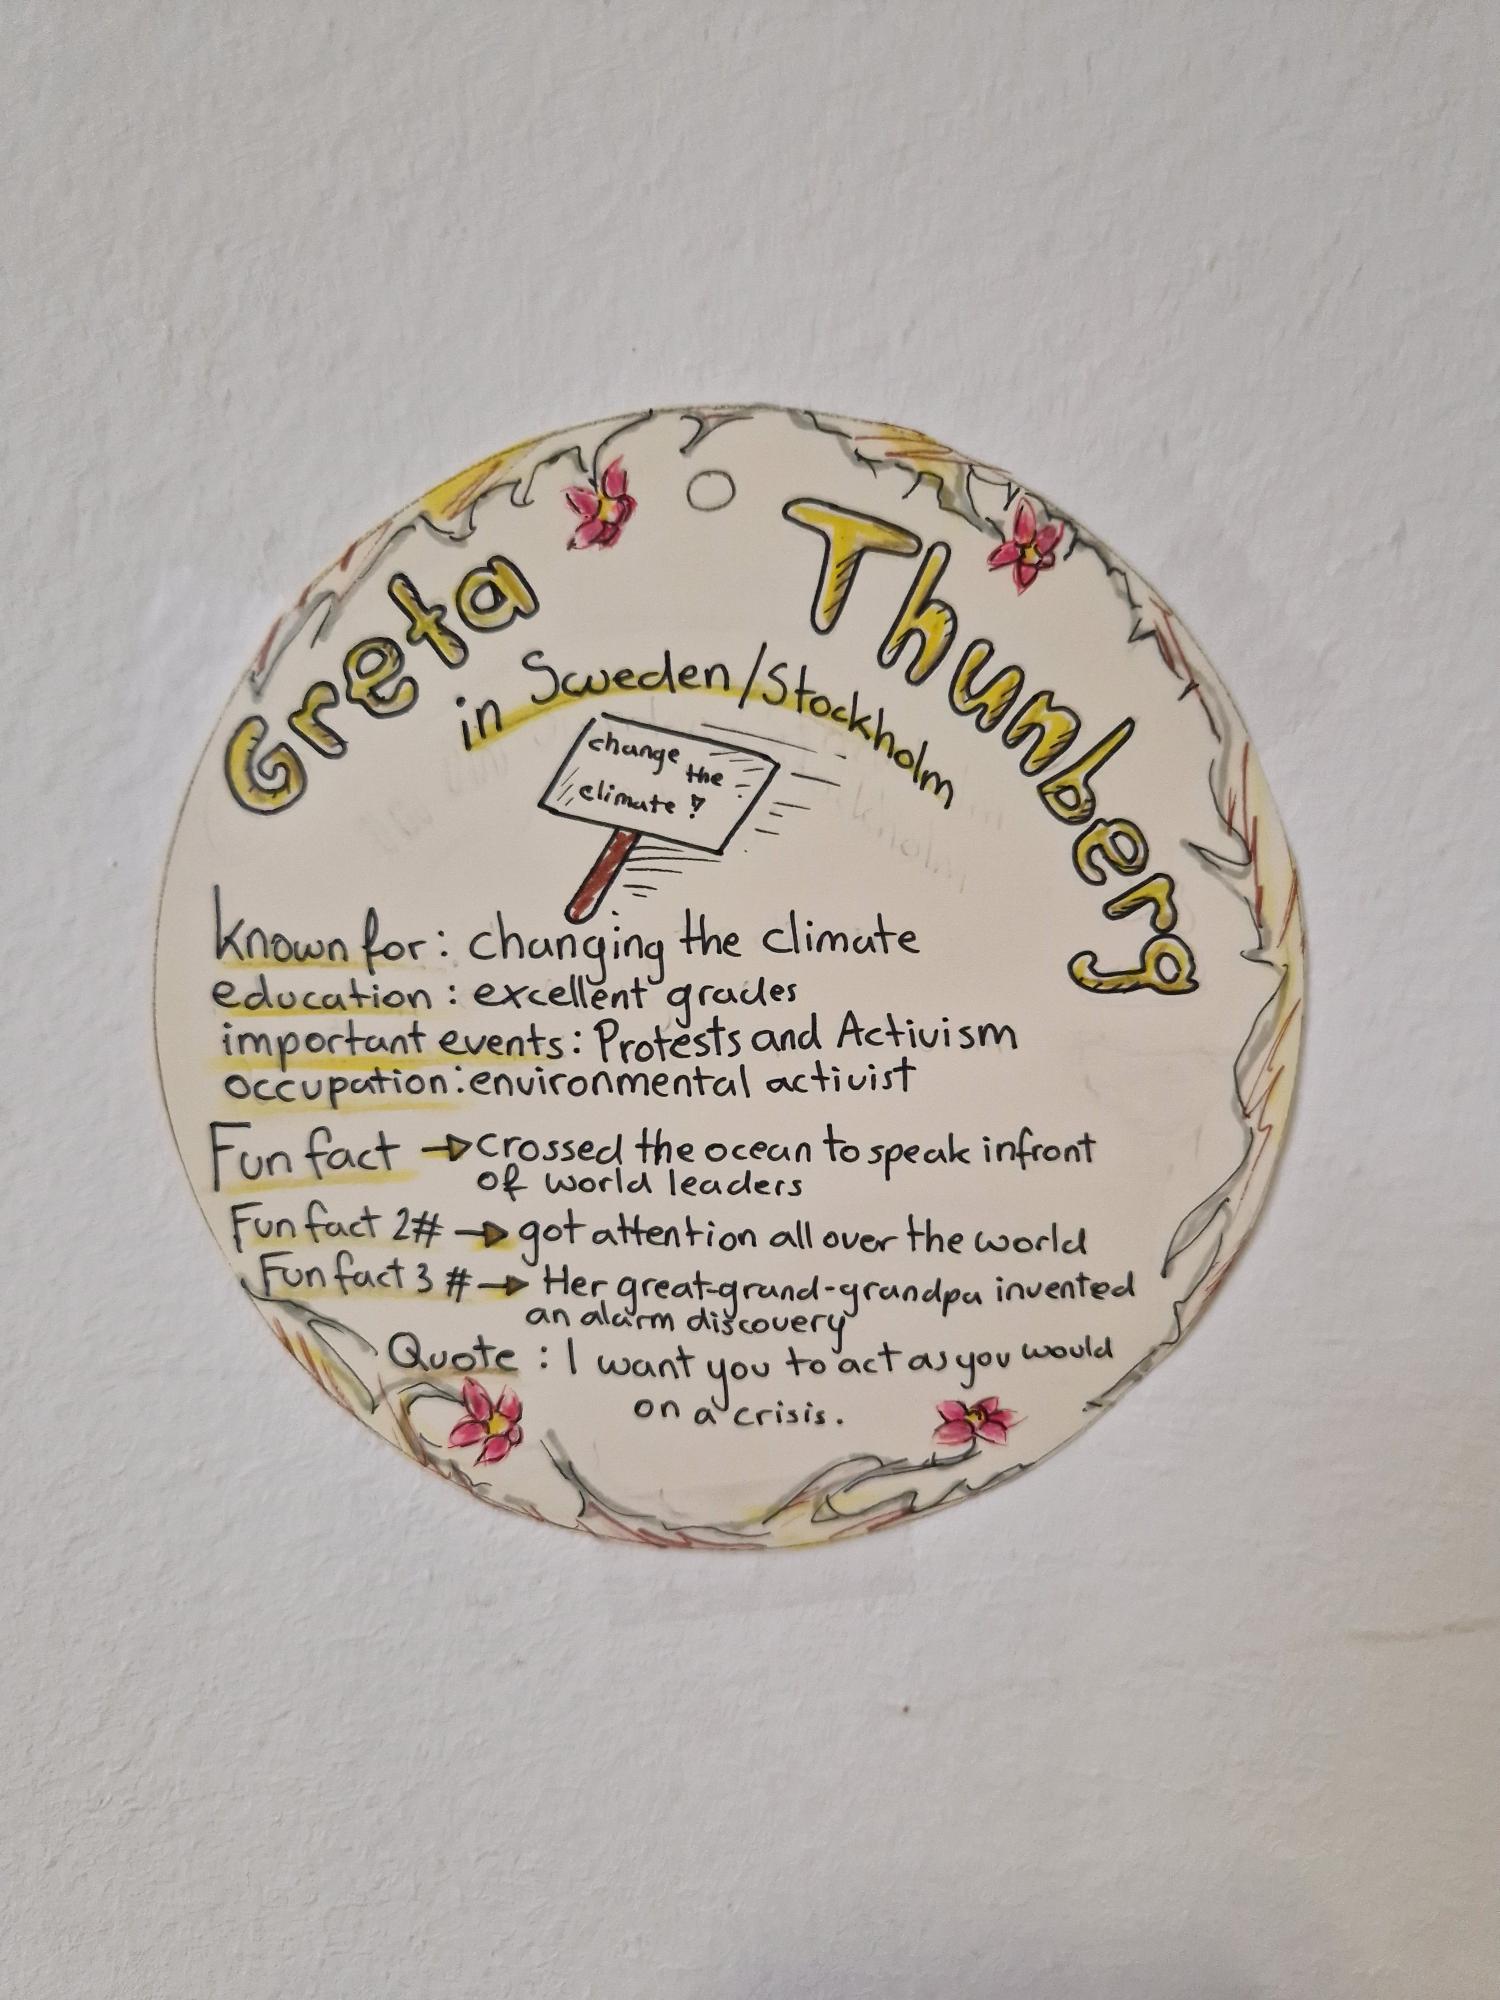 Greta Thunberg
in Sweden/Stockholm
change the
climate !
known for: changing the climate
education: excellent grades
important events: Protests and Activism
occupation: environmental activist
Fun fact → crossed the ocean to speak infront
of world leaders
Fun fact 2# → got attention all over the world
Fun fact 3 # → Her great-grand-grandpa invented
an alarm discovery
Quote : I want you to act as you would
on a crisis.